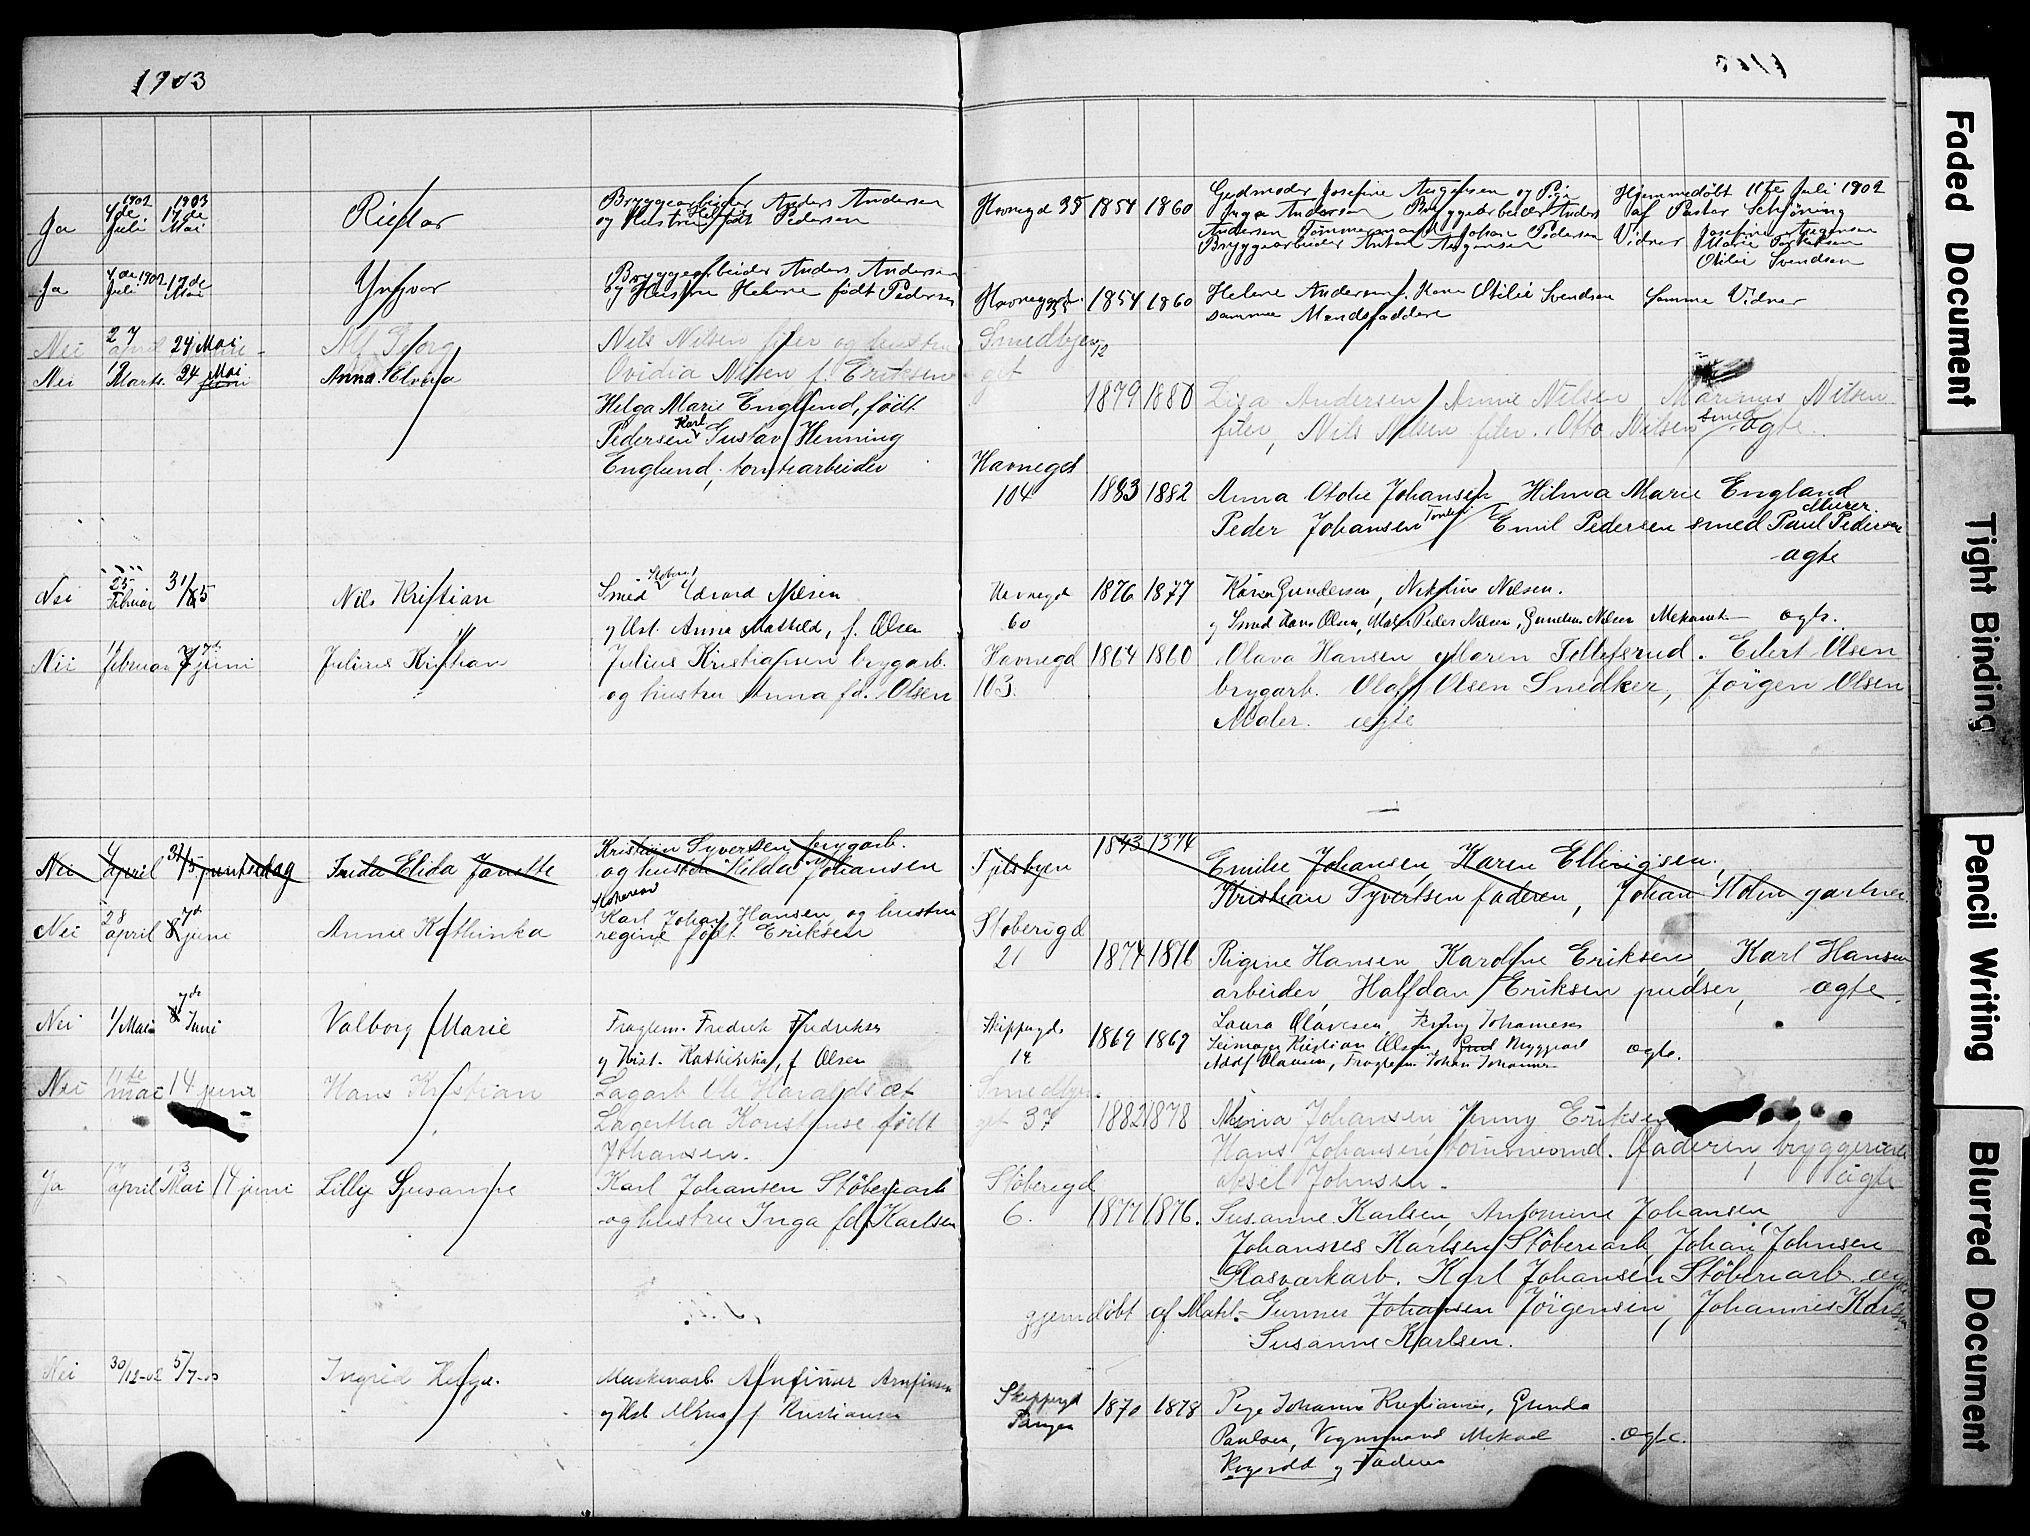 1903
Ja 4de Juli 1902 17de Mai 1903
Bryggearbeider Anders Andersen
og Hustru Helene født Pedersen
Havnegd 35 1854 1860
Gudmoder Josefine og Pige
Inga Andersen Bryggearbeider Anders
Andersen Tømmermand Johan Pedersen
Bryggearbeider Anton
Hjemmedøbt 11te Juli 1902
af Pastor Schjöning
Vidner Josefine
Marie
Otilie Svendsen
Ja 4de Juli 1902 17de Mai
Yngvar
Bryggearbeider Anders Andersen
og Hustru Helene født Pedersen
Havnegd. 35 1854 1860
Helene Andersen Otilie Svendsen
samme Mandsfaddere
Samme Vidner
Nei 27 april 24 Mai
Alf Georg
Nils Nilsen filer og hustru
Ovidia Nilsen f. Eriksen
Smedbjer
get 12
1879 1880
Lisa Andersen Annie Nilsen Marinus Nilsen
filer, Nils Nilsen filer. Otto Nilsen smed ægte.
Nei 19 Marts 24 Mai juni
Anna Elvira
Helga Marie Englund, født
Pedersen Karl Gustav Henning
Englund, tomtearbeider
Havnegd
104
1883 1882
Anna Otolie Johansen Hilma Marie England
Peder Johansen Emil Pedersen smed Paul Pedersen Murer.
ægte
Nei 25 Februar 31/5
Nils Kristian
Smed Edvard Nilsen
og Hst. Anna Mathild, f. Olsen
Havnegd
60
1876 1877
Karen Gundersen, Nilsen.
og Smed Hans Olsen, Maler Peder Nilsen, Nilsen ægte.
Nei 14 februar 7de juni
Julius Kristian
Julius Kristiansen brygarb.
og hustru Anna fd. Olsen
Havnegd
103.
1864 1860
Olava Hansen Maren Tollefsrud. Edert Olsen
brygarb. Olaf Olsen Snedker, Jörgen Olsen
Maler. ægte
Nei april 31/5 juntsdag
Frida Elida Janette
Kristian Syversen brygarb.
og hustru Hilda Johansen
1843 1874
Emilie Johansen, Karen Ellingsen,
Kristian Syvertsen faderen, Johan Holm gartner
Nei 28 april 7de june
Annie Kathinka
Karl Johan Hansen og hustru
regine født Eriksen
Støberigd
21
1874 1876
Rigine Hansen, Karoline Eriksen, Karl Hansen
arbeider, Halfdan Eriksen pudser, ægte.
Nei 1/Mai 7de Juni
Valborg Marie
Fraglem. Fredrik Fredriksen
og Hst. Kathinka, f. Olsen
Skippergd.
14
1869 1869
Laura Olavesen, Jenny Johannesen
Kristian Olsen, Bryggearb
Adolf Olausen, Johan Johannesen
ægte.
Nei 11te mai 14 june
Hans Kristian
Lagarb Ole Haraldsæt
Lagertha Konstanse født
Johansen.
Smedbjer
get 37
1882 1878
Mina Johansen Jenny Eriksen
Hans Johansen tømmermd. faderen, bryggeriarb
aksel Johnsen.
ægte
Ja 17 april 13 Mai 14 juni
Lilly Susanne
Karl Johansen Støberiarb
og hustru Inga fd. Karlsen
Støberigd
6.
1877 1876.
Susanne Karlsen, Antomine Johansen,
Johannes Karlsen Støberiarb, Johan Johnsen
Glasværkarb. Karl Johansen Støberiarb. ægte
gjemdöbt af Gunner Johansen Jörgensen, Johannes Karlsen
Susanne Karlsen.
Nei 30/12-02 5/7-03
Ingrid Helga.
Maskinarb. Arnfinner Arnfinsen
og Hst. f. Kristiansen
Skippergd
1870 1878
Pige Johanne Kristiansen, Gunda
Paulsen, Vognmand
og Faderen
ægte.
Faded Document
Tight Binding
Pencil Writing
Blurred Document